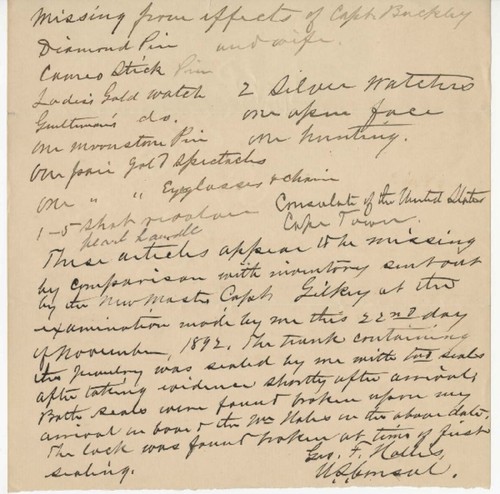 Missing from effects of Capt. Buckley
and wife.
Diamond Pin
Cameo Stick Pin
Ladies Gold watch
Gentleman's do.
One moonstone Pin
One pair gold spectacles
one " " Eyeglasses & chain
1-5 shot revolver
pearl handle
2 Silver watches
one open face
one hunting.
Consulate of the United States
Cape Town.
These articles appear to be missing
by comparison with inventory sent out
by the New Master Capt. Gilkey at the
examination made by me this 22nd day
of November, 1892. The trunk containing
the jewelry was sealed by me with two seals
after taking evidence shortly after arrival.
Both seals were found broken upon my
arrival on board the Wm Hales on the above date.
The lock was found broken at time of first
sealing.
Geo. F. Hollis,
US Consul.